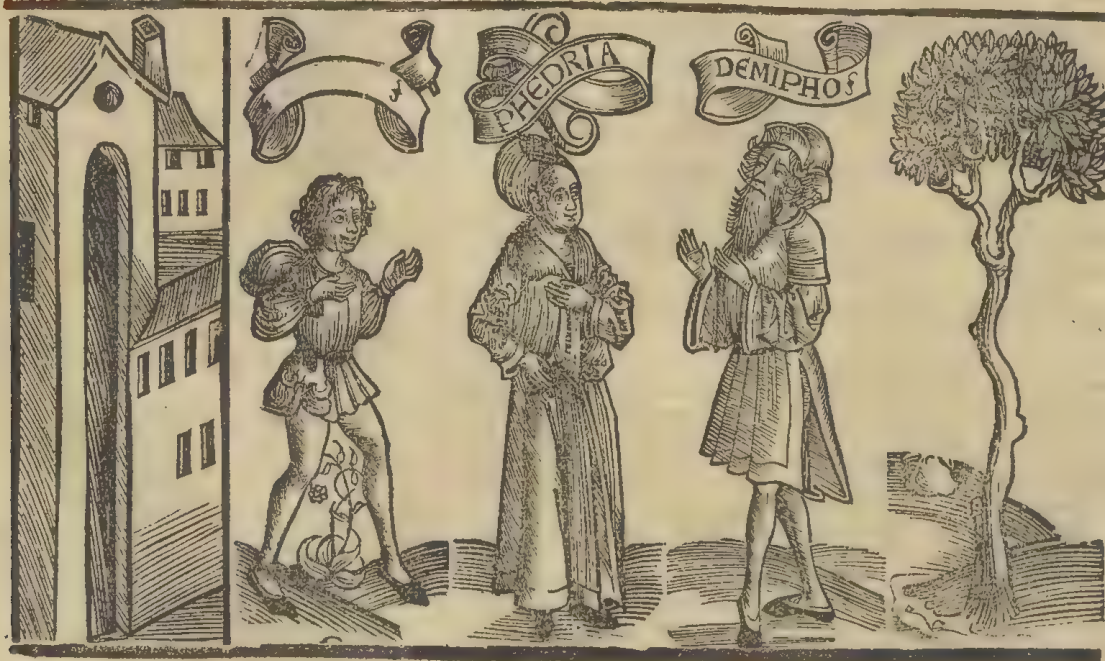 PHEDRIA
DEMIPHOS